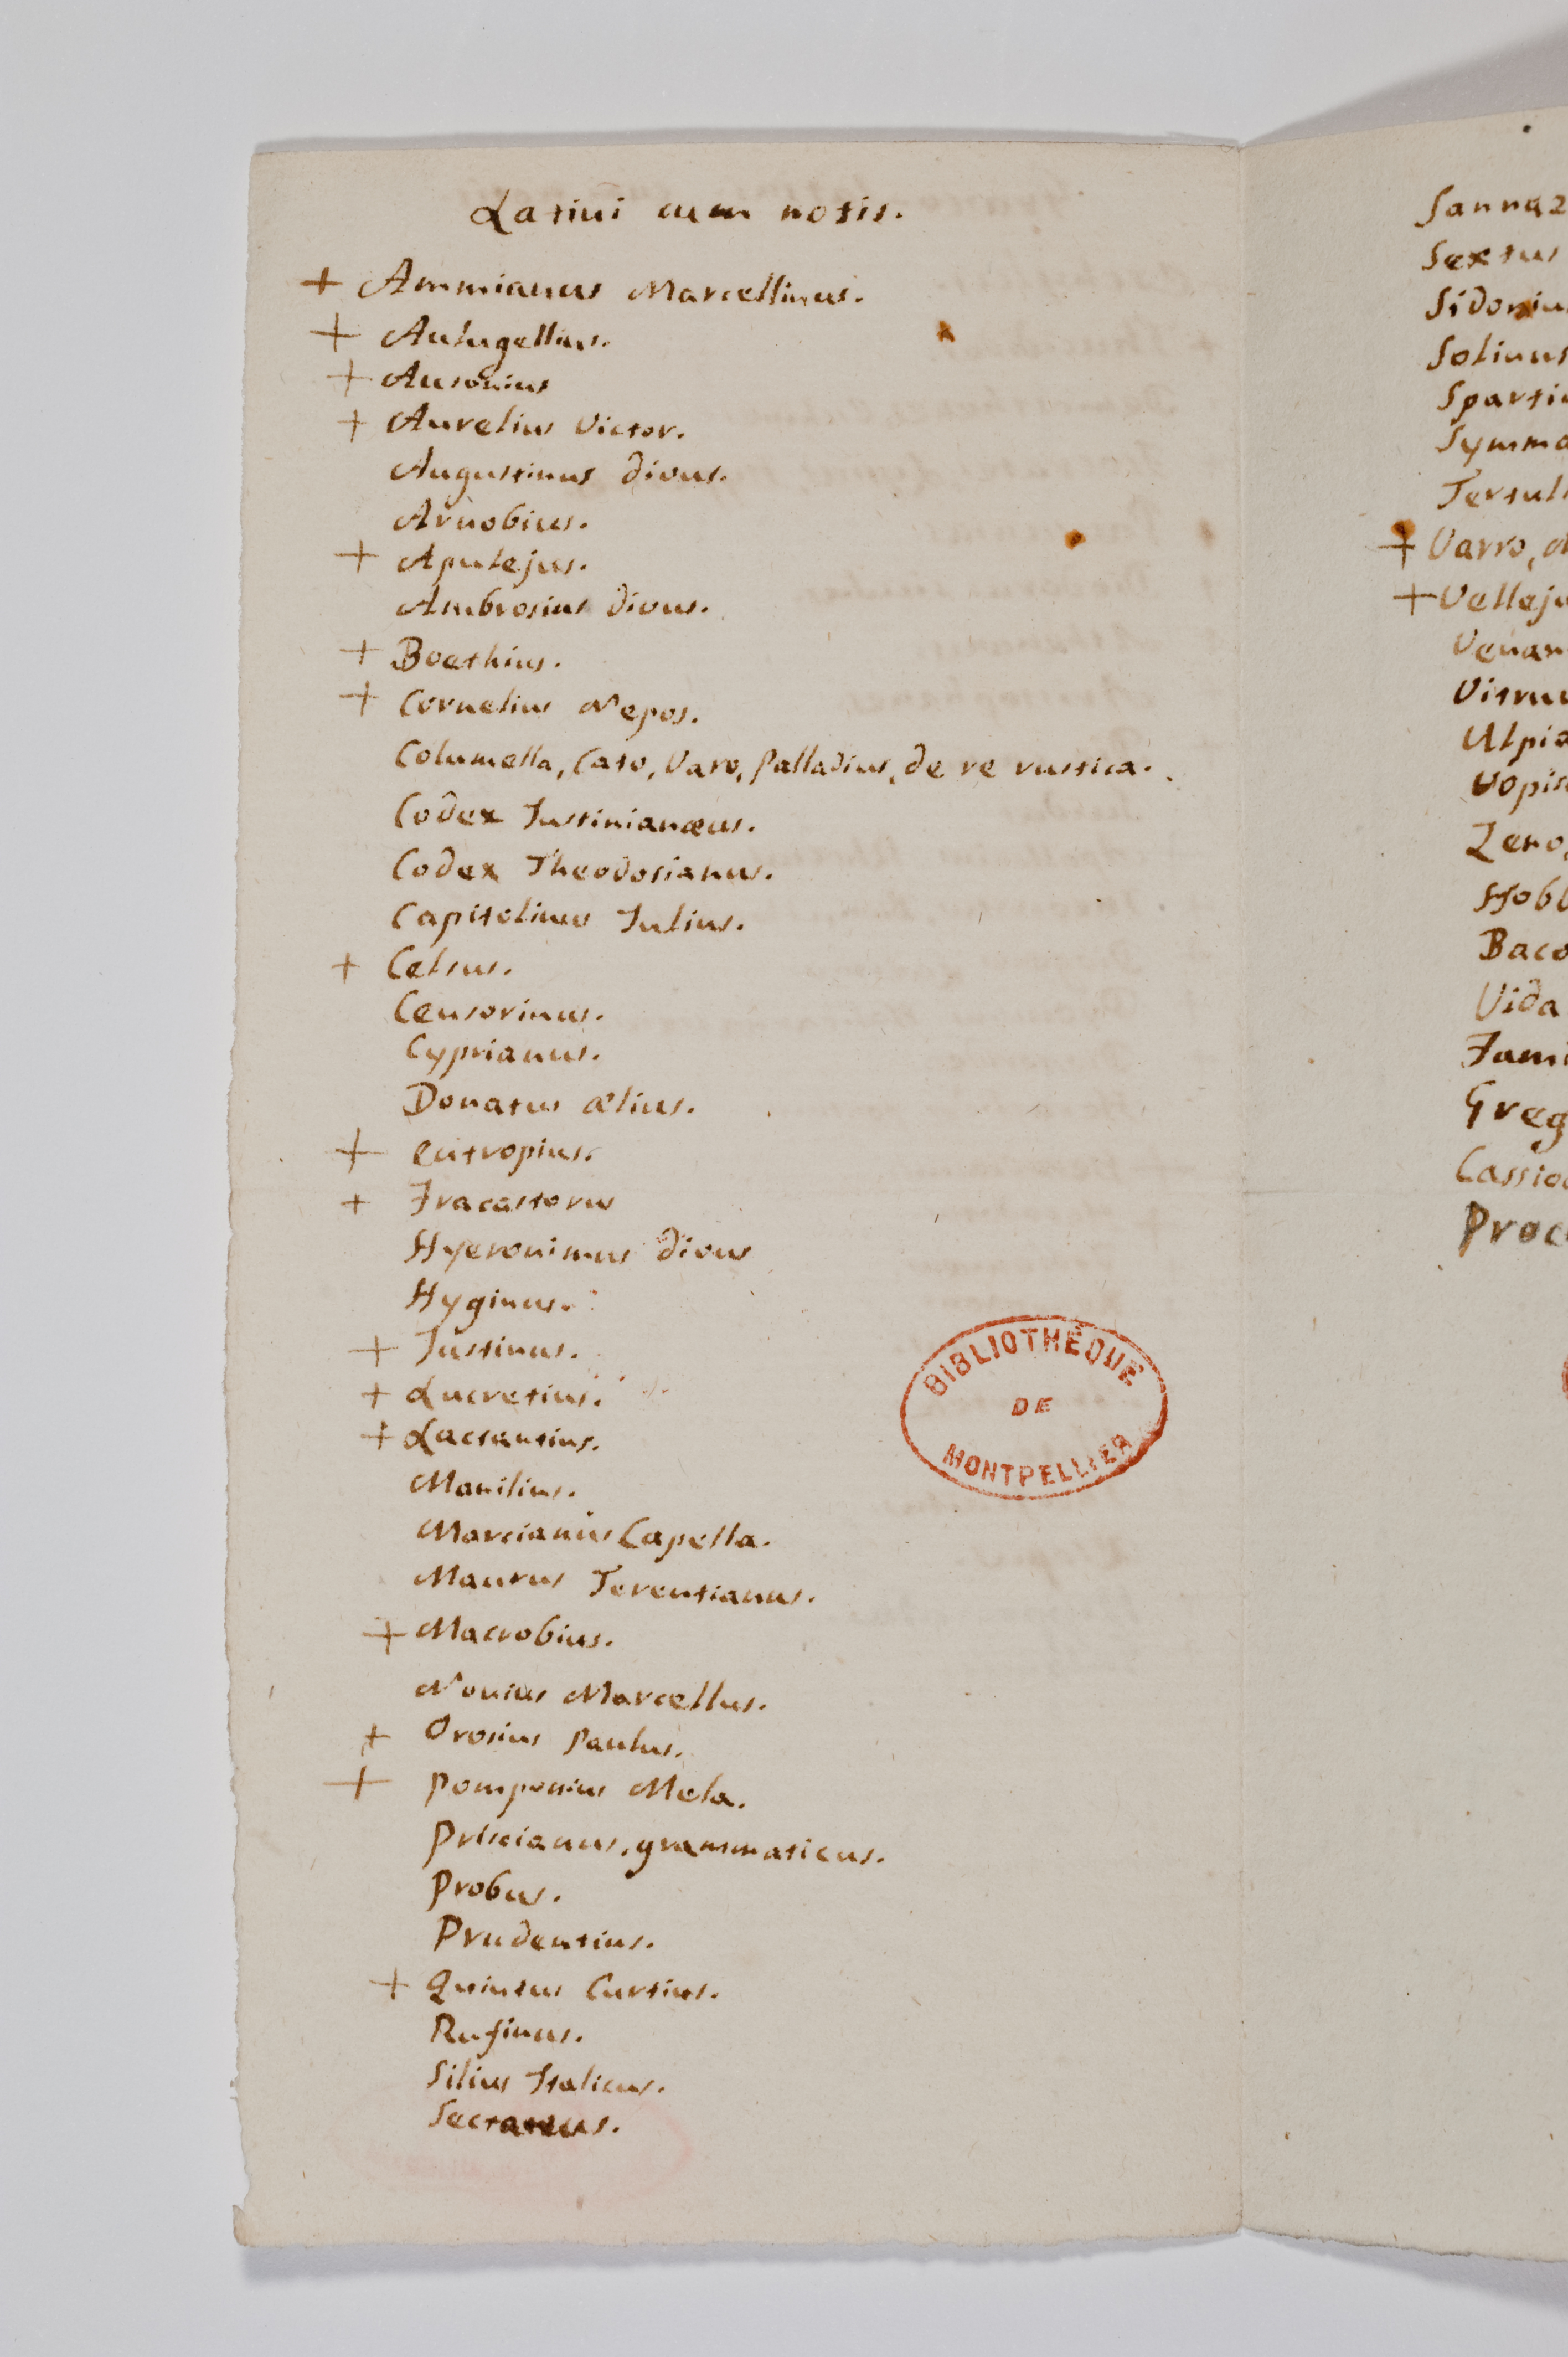 Latini cum notis.
+ Ammianus Marcellinus.
+ Aulugellius.
+ Ausonius
+ Aurelius Victor.
Augustinus divus.
Arnobius.
+ Apulejus.
Ambrosius divus.
+ Boethius.
+ Cornelius Nepos.
Columella, Cato, Varo, Palladius, de re rustica.
Codex Justinianæus.
Codex Theodosianus.
Capitolinus Julius.
+ Celsus.
Censorinus.
Cyprianus.
Donatus ælius.
+ eutropius.
+ Fracastorus
Hyeronimus divus
Hyginus.
+ Justinus.
+ Lucretius.
+ Lactantius.
Manilius.
Marcianus Capella.
Maurus Terentianus.
+ Macrobius.
Nonius Marcellus.
+ Orosius Paulus.
+ Pomponius Mela.
Priscianus, grammaticus.
Probus.
Prudentius.
+ Quintus Curtius.
Rufinus.
Silius Italicus.
BIBLIOTHÈQUE
DE
MONTPELLIER
Sannaz
Sextus
Sidoniu
Solinus
Sparti
Symma
Tertul
+ Varro, d
+ Velleju
Venan
Vitru
Ulpia
Vopis
Zeno,
Hobb
Baco
Vida
Fami
Greg
Cassio
Proc